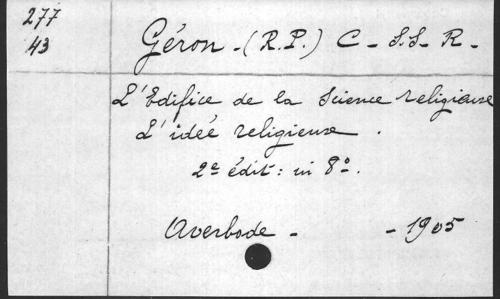 277
43
Géron - (R.P.) C - S.S. R -
L'Edifice de la Science religieuse
L'idée religieuse .
2e édit: in 8o.
Averbode - - 1905